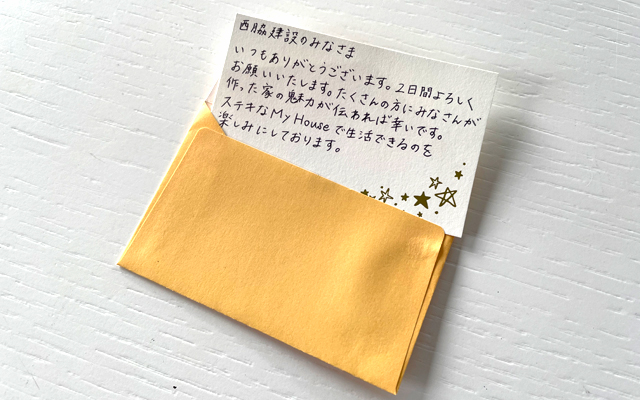 西脇建設のみなさま
いつもありがとうございます。2日間よろしく
お願いいたします。たくさんの方にみなさんが
作った家の魅力が伝われば幸いです。
ステキなMy Houseで生活できるのを
楽しみにしております。